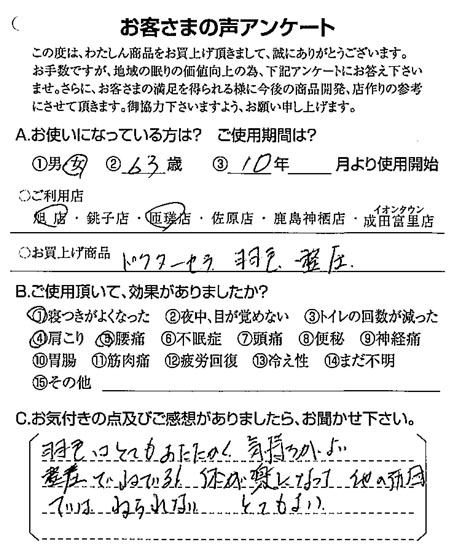 お客さまの声アンケート
この度は、わたしん商品をお買上げ頂きまして、誠にありがとうございます。
お手数ですが、地域の眠りの価値向上の為、下記アンケートにお答え下さい
ませ。さらに、お客さまの満足を得られる様に今後の商品開発、店作りの参考
にさせて頂きます。御協力下さいますよう、お願い申し上げます。
A.お使いになっている方は? ご使用期間は?
①男 女 ② 63 歳 ③ 10 年 月より使用開始
○ご利用店
旭店・銚子店・匝瑳店・佐原店・鹿島神栖店・成田富里店
イオンタウン
○お買上げ商品 ドクターセラ 羽毛
B.ご使用頂いて、効果がありましたか?
①寝つきがよくなった ②夜中、目が覚めない ③トイレの回数が減った
④肩こり ⑤腰痛 ⑥不眠症 ⑦頭痛 ⑧便秘 ⑨神経痛
⑩胃腸 ⑪筋肉痛 ⑫疲労回復 ⑬冷え性 ⑭まだ不明
⑮その他
C.お気付きの点及びご感想がありましたら、お聞かせ下さい。
羽毛はとてもあたたかく 気持ちがよい
でねている 体が楽になって 他の
では ねられない とてもよい